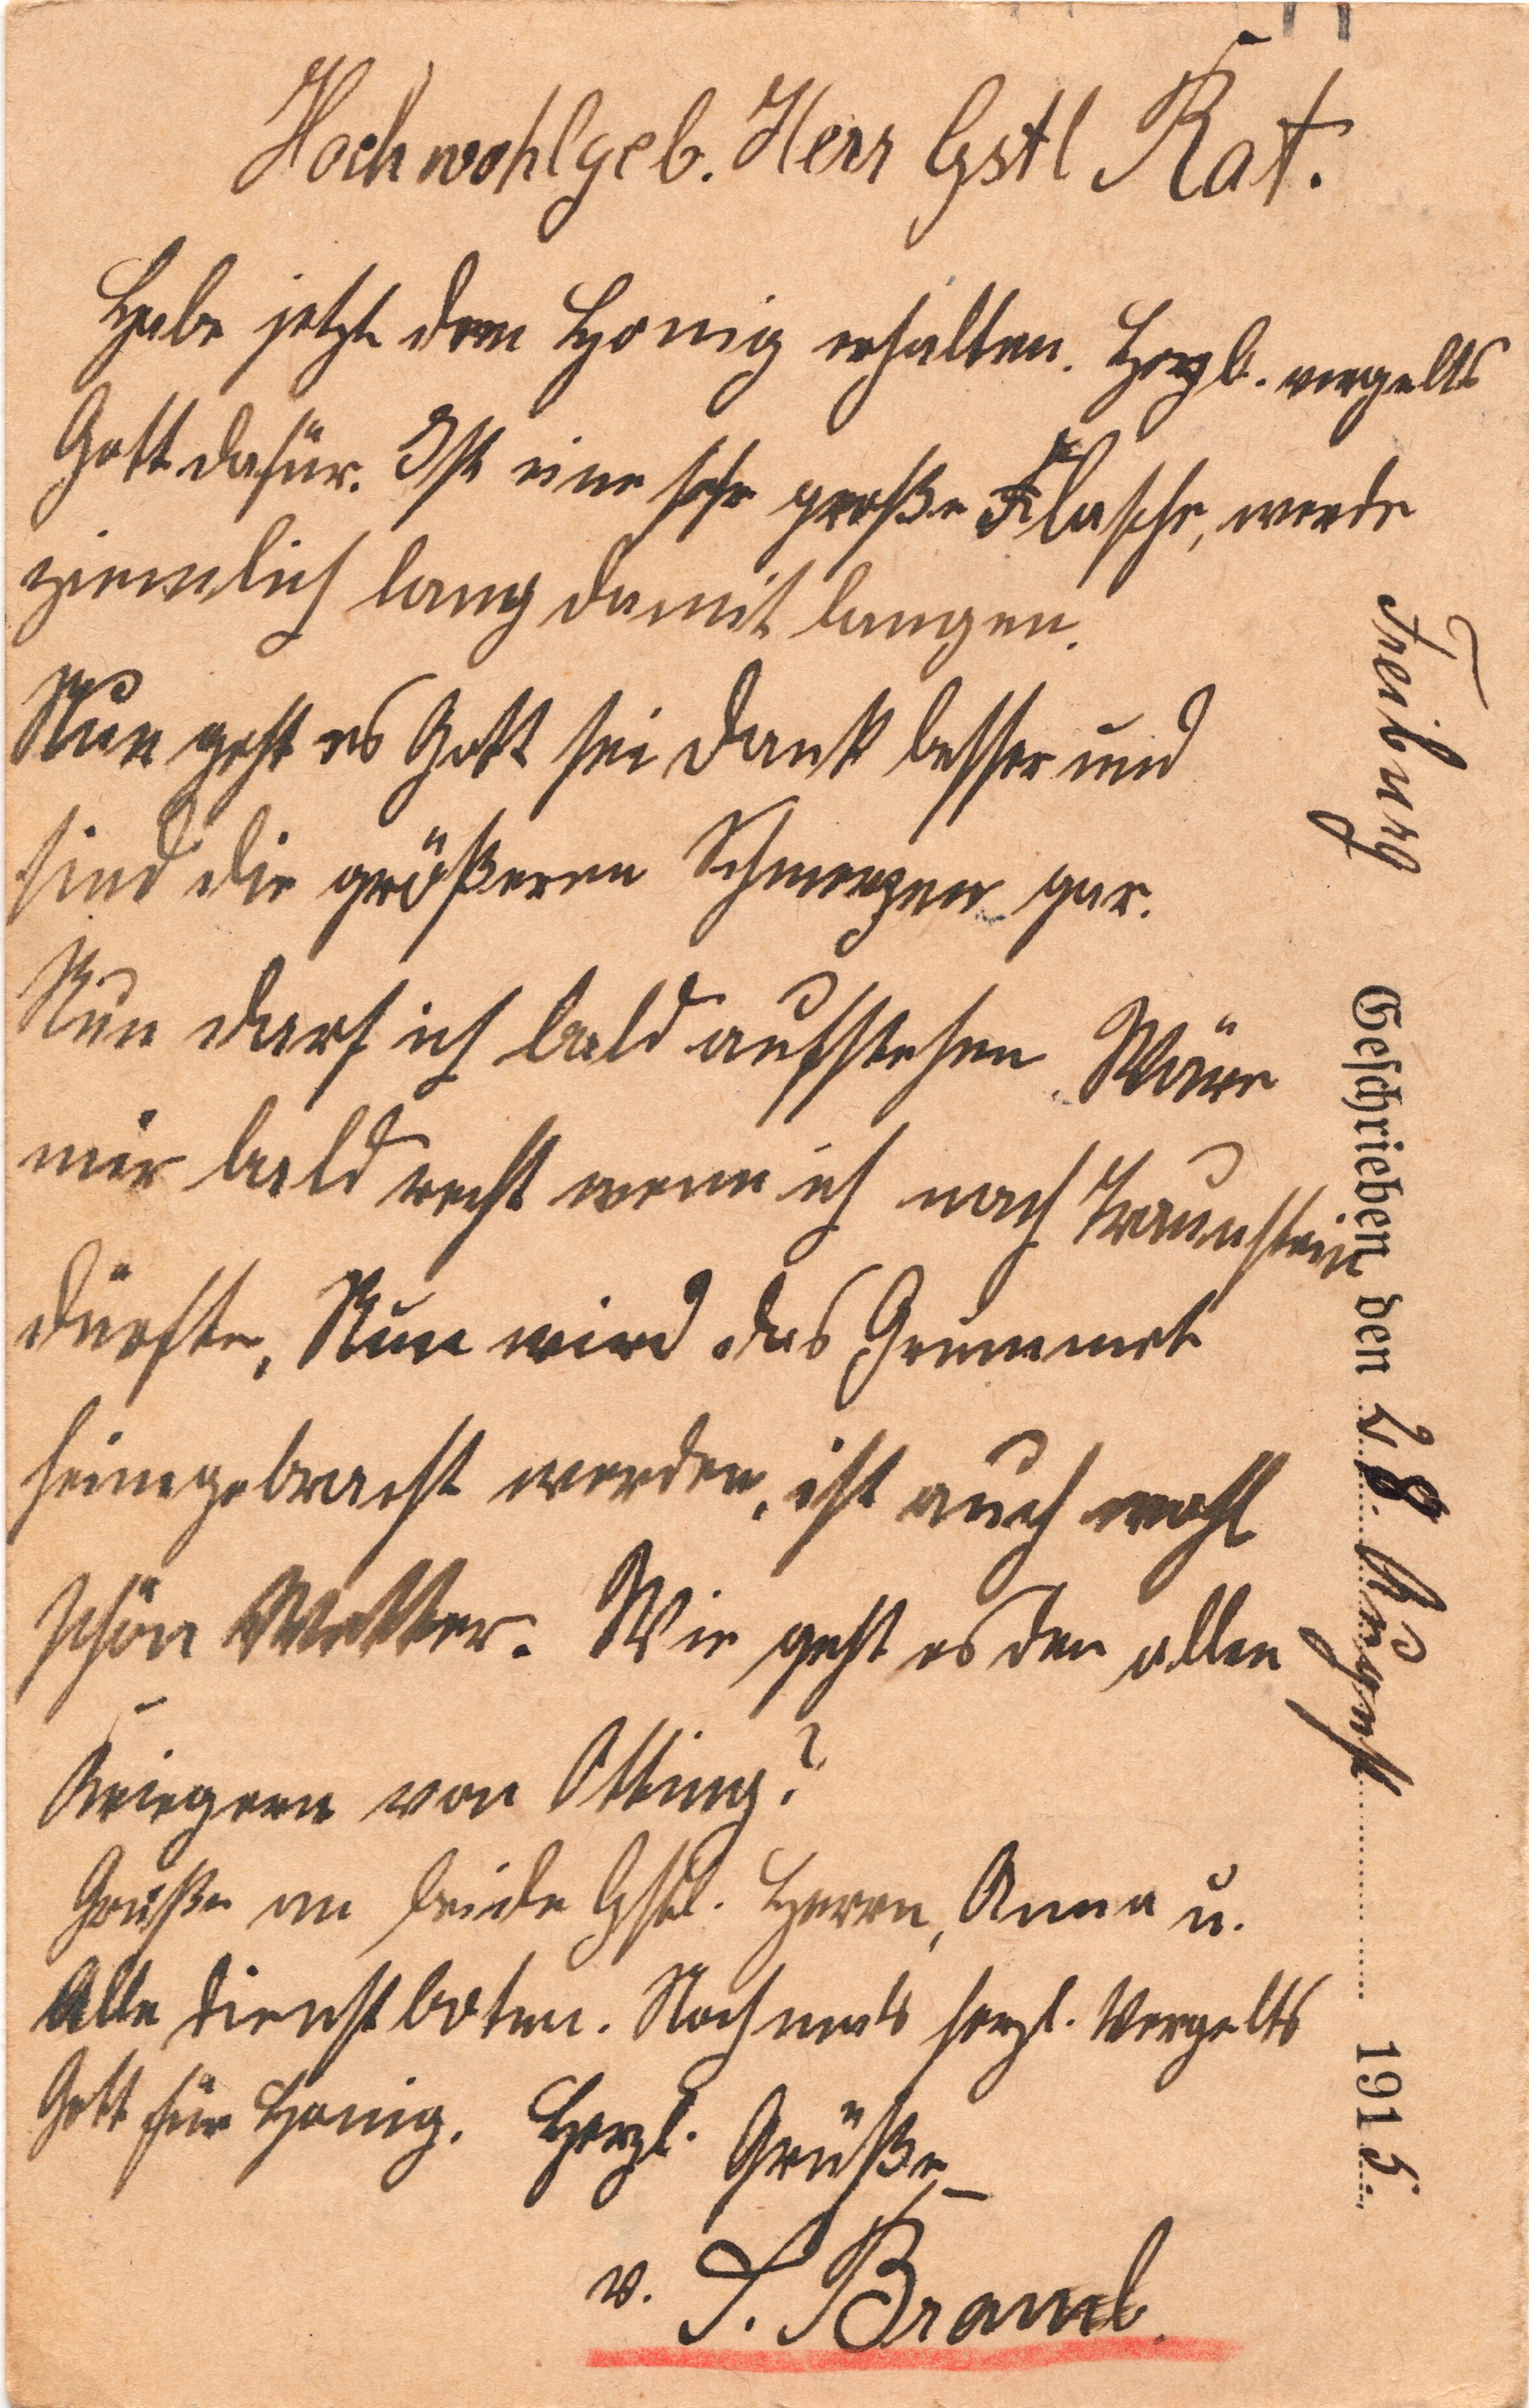 Hochwohlgeb. Herr Gstl Rat.
Habe jetzt den Honig erhalten. Herzl. vergelts
Gott dafür. Ist eine sehr große Flasche, werde
ziemlich lang damit langen.
Nun geht es Gott sei Dank besser und
sind die größeren Schmerzen gar.
Nun darf ich bald aufstehen. Wäre
mir bald recht wenn ich nach Traunstein
dürfte, Nun wird das Grummet
heimgebracht werden, ist auch wohl
schön Wetter. Wie geht es den allen
Kriegern von Otting?
Grüße an beide Gstl. Herrn, Anna u.
Alle Dienstboten. Nochmals herzl. Vergelts
Gott für Honig. Herzl. Grüße
v. J. Braml.
Freiburg Geschrieben den 28. August 1915.